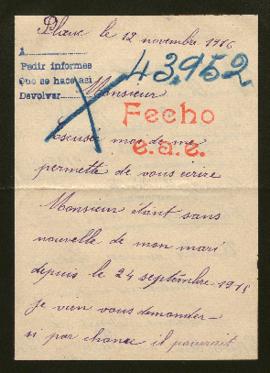 le 12 novembre 1916
A
Pedir informes
Que se hace asi
Devolver
43,952
Monsieur
Fecho
e.a.e.
Escusez moi de me
permettre de vous écrire
Monsieur étant sans
nouvelle de mon mari
depuis le 24 septembre 1915
je vien vous demander
si par chance il pourrait